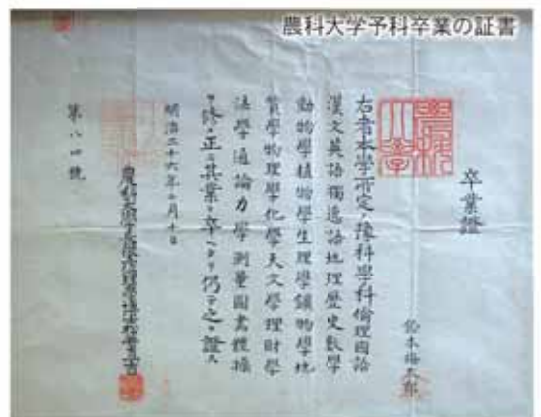 農科大学予科卒業の証書
卒業證
鈴木梅太郎
農科大學
右者本學所定ノ豫科學科倫理國語
漢文英語獨逸語地理歴史数學
動物學植物學生理學鑛物學地
質學物理學化學天文學理財學
法學通論力學測量圖書體操
ヲ修メ正ニ其業ヲ卒ヘタリ仍テ之ヲ證ス
明治二十六年七月十日
農科大學長
第八四號